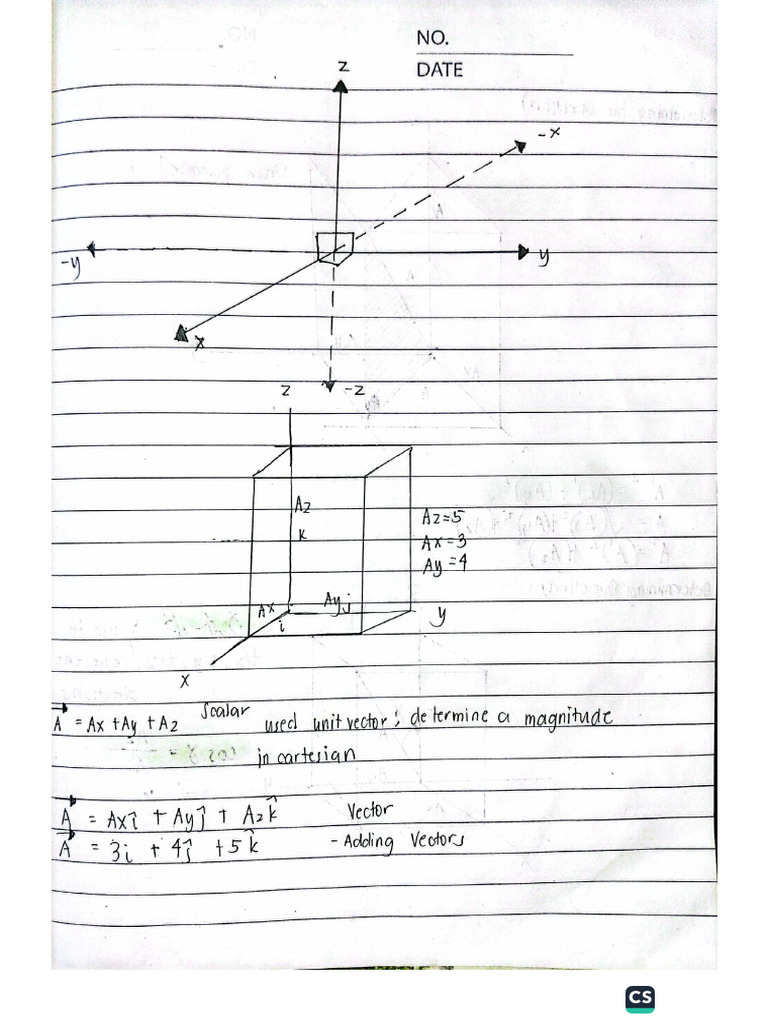 NO.
DATE
z
-x
-y
y
x
-z
z
Az
k
Az=5
Ax=3
Ay=4
Ax
Ay j
i
y
x
A = Ax + Ay + Az Scalar used unit vector; determine a magnitude
in cartesian
A = Axî + Ayĵ + Azk̂ Vector
A = 3i + 4ĵ + 5k̂ - Adding Vectors
CS